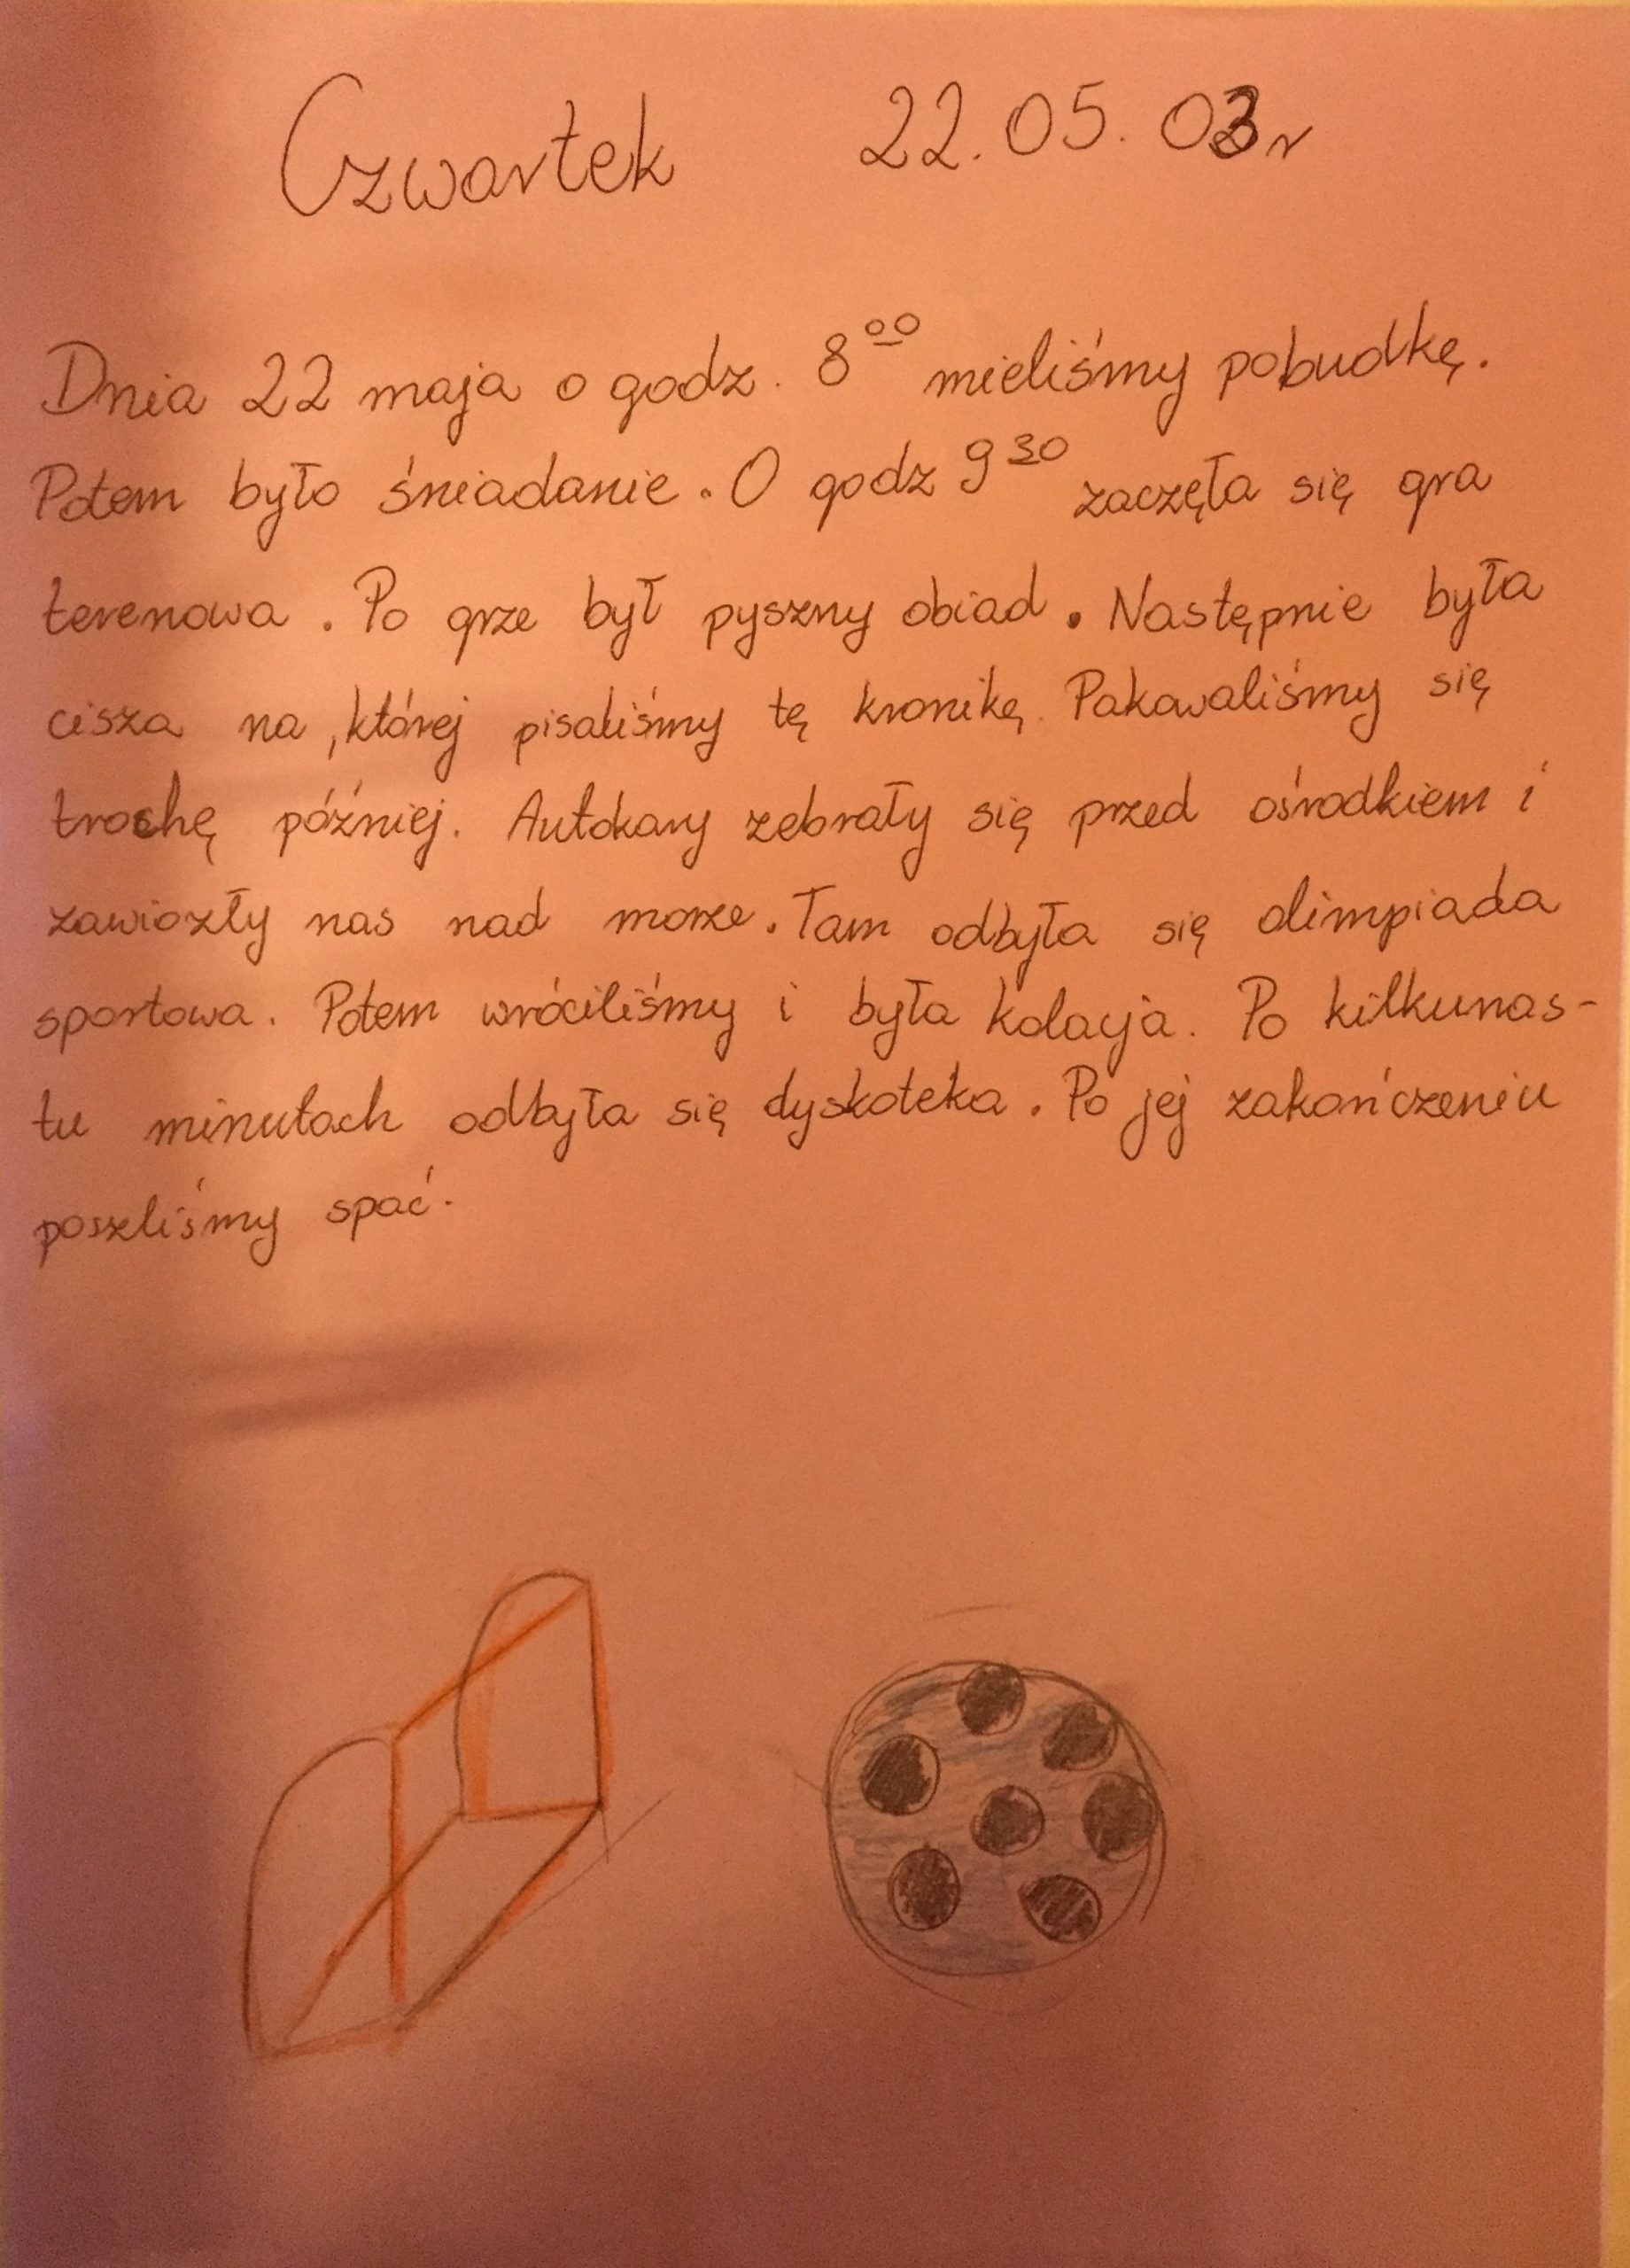 Czwartek 22.05.03r
Dnia 22 maja o godz. 8⁰⁰ mieliśmy pobudkę.
Potem było śniadanie. O godz 9³⁰ zaczęła się gra
terenowa. Po grze był pyszny obiad. Następnie była
cisza na ,której pisaliśmy tę kronikę. Pakowaliśmy się
trochę później. Autokary zebrały się przed ośrodkiem i
zawiozły nas nad morze. Tam odbyła się olimpiada
sportowa. Potem wróciliśmy i była kolacja. Po kilkunas-
tu minutach odbyła się dyskoteka. Po jej zakończeniu
poszeliśmy spać.